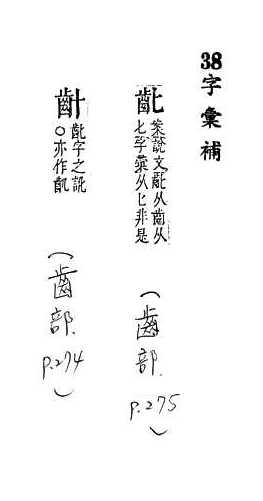 38字彙補
齔 案說文齔从齒从
七字彙从匕非是
(齒部.
p.275)
齔字之訛
○亦作齓
(齒部.
p.274)